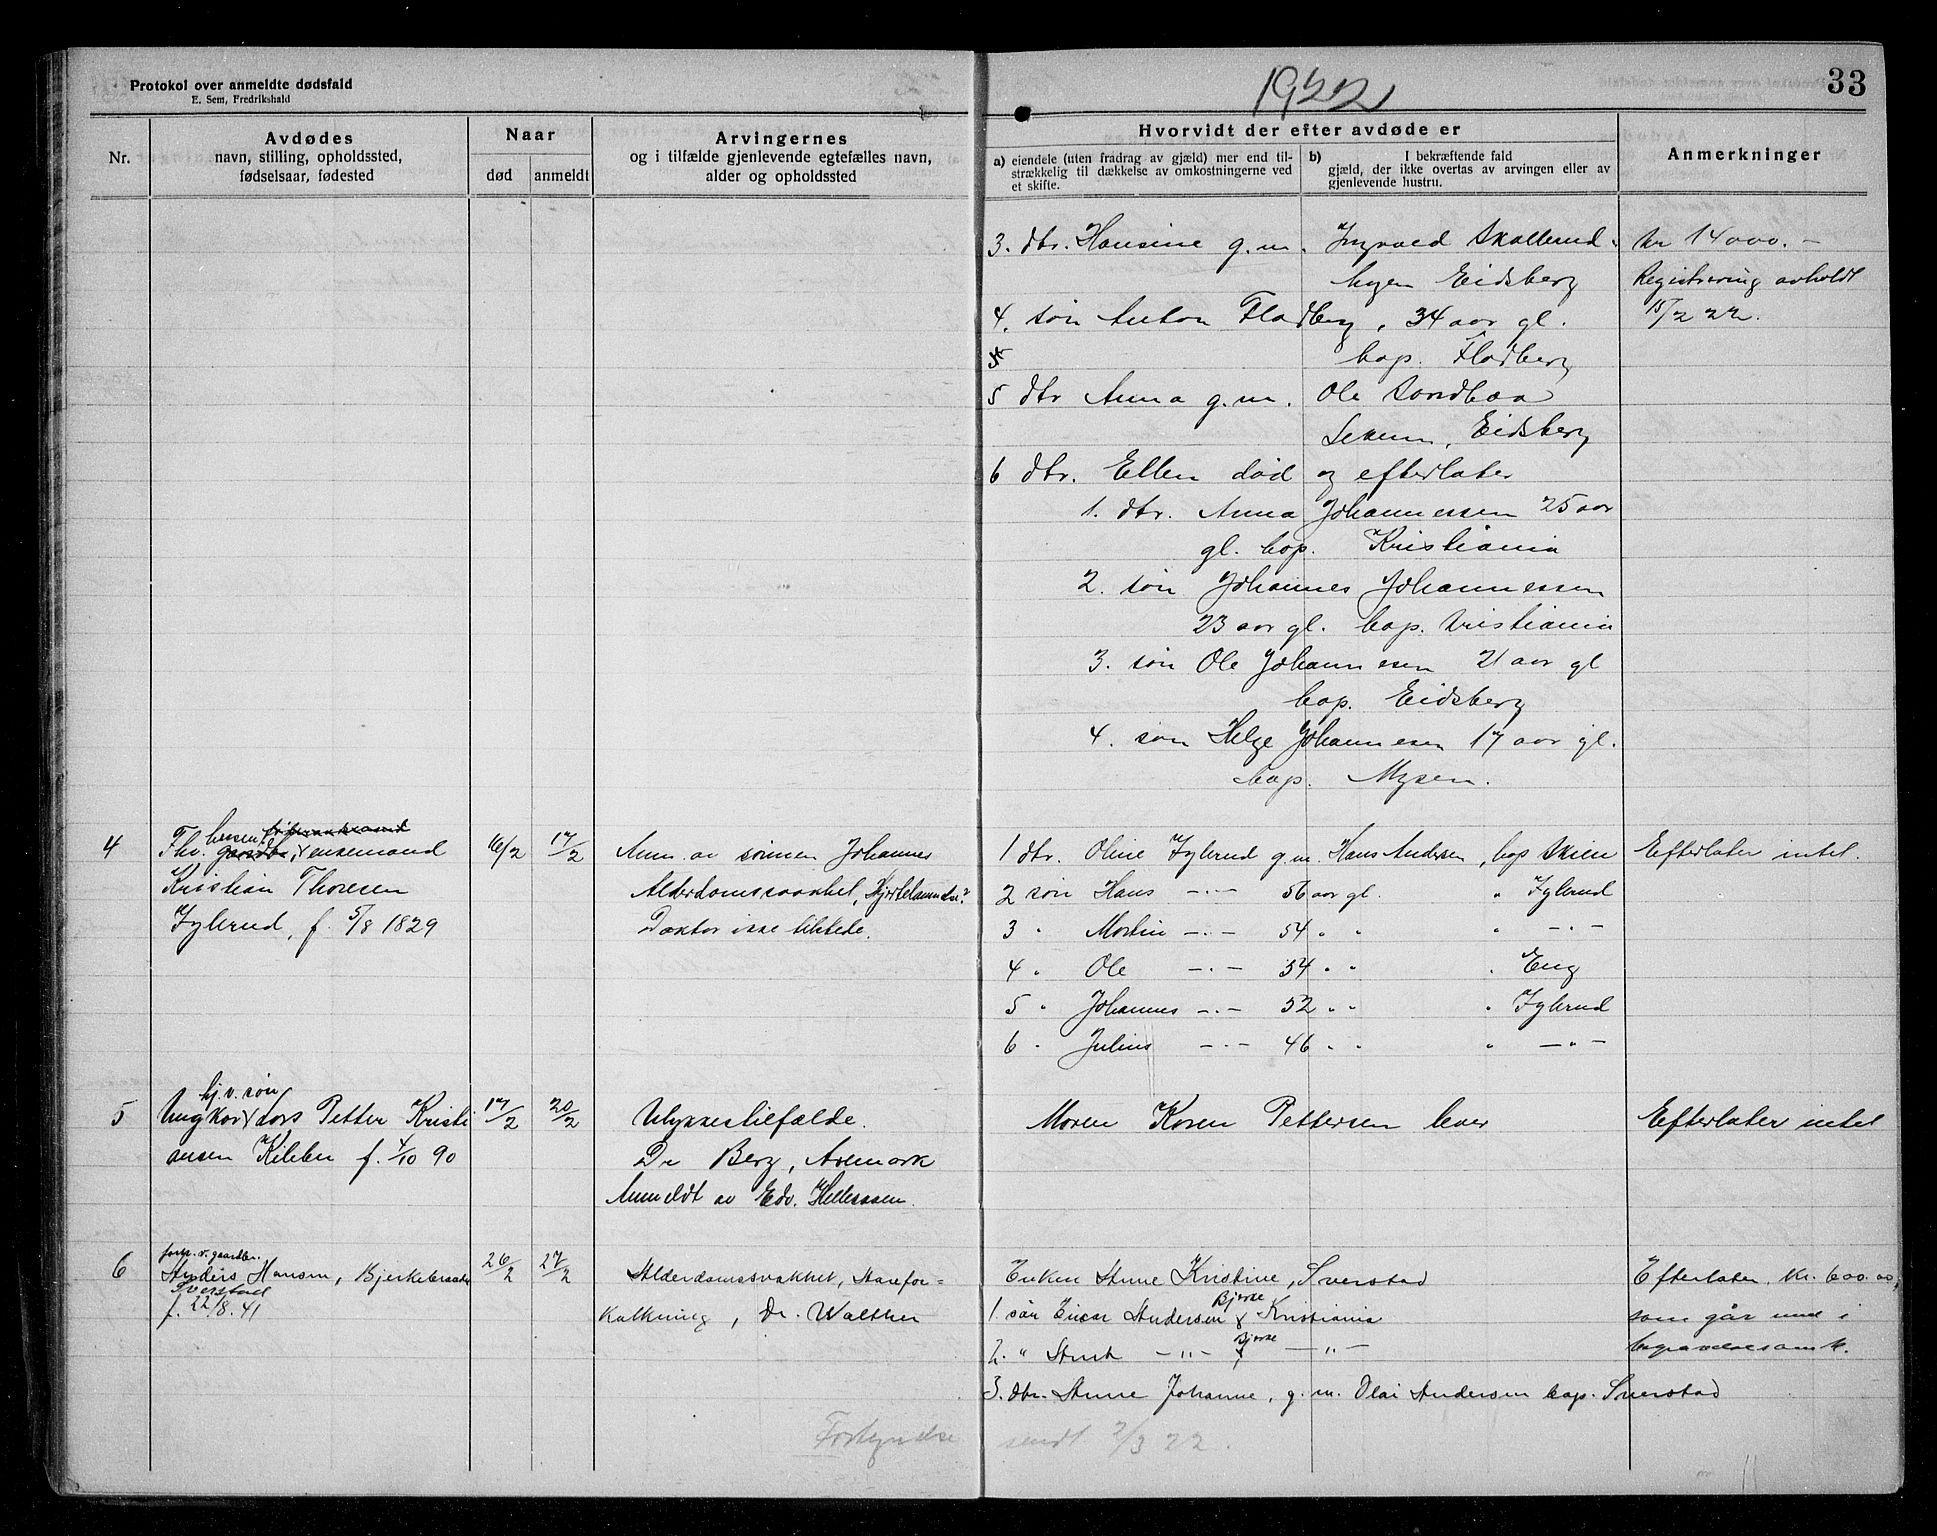 Protokol over anmeldte dødsfald
E. Sem, Fredrikshald
1922
33
Nr.
Avdødes
navn, stilling, opholdssted,
fødselsaar, fødested
Naar
død
anmeldt
Arvingernes
og i tilfælde gjenlevende egtefælles navn,
alder og opholdssted
Hvorvidt der efter avdøde er
a) eiendele (uten fradrag av gjæld) mer end til-
strækkelig til dækkelse av omkostningerne ved
et skifte.
b) I bekræftende fald
gjæld, der ikke overtas av arvingen eller av
gjenlevende hustru.
Anmerkninger
3. dtr. Hansine g.m. Ingvald Skallerud-
hagen Eidsberg
Kr 14000.-
Registrering avholdt
15/2 22.
4. søn Anton Fladberg, 34 aar gl.
bop. Fladberg
5 dtr Anna g.m. Ole Sandbaa
Lekum, Eidsberg
6 dtr. Ellen død og efterlater
1. dtr. Anna Johannessen 25 aar
gl. bop. Kristiania
2. søn Johannes Johannessen
23 aar gl. bop. Kristiania
3. søn Ole Johannesen 21 aar gl
bop. Eidsberg
4. søn Helge Johannesen 17 aar gl.
bop. Mysen.
4
Fhv. enkemand
Kristian Thoresen
Jylerud, f. 5/8 1829
16/2
17/2
Anm. av sønnen Johannes
Alderdomssvakhet,
Doktor ikke tilstede.
1 dtr. Oline Jylerud g.m. Hans Andersen, bop Skien
2 søn Hans -.- 56 aar gl. " Jylerud
3 " Martin -.- 54 " " " -.-
4 " Ole -.- 54 " " " Eng
5 " Johannes -.- 52 " " " Jylerud
6 " Julius -.- 46 " " " -"-
Efterlater intet.
5
hj.v. søn
Ungkar Lars Petter Kristi
ansen Kilebu f. 4/10 90
17/2
20/2
Ulykkestilfælde.
Dr Berg, Aremark
Anmeldt av Edv. Hellesen.
Moren Karen Pettersen lever
Efterlater intet
6
forp. v. gaardbr.
Anders Hansen,
Sverstad
f. 22/8.41
26/2
27/2
Alderdomssvakhet, Aarefor-
kalkning, Dr. Walther
Enken Anne Kristine, Sverstad
1. søn Einar Andersen Bjerke Kristiania
2. " -"- Bjerke -"-
3. dtr. Anne Johanne, g.m. Olai Andersen bop. Sverstad
Efterlater kr. 600.00,
som går med i
begravelsesomk.
sendt 2/3 22.